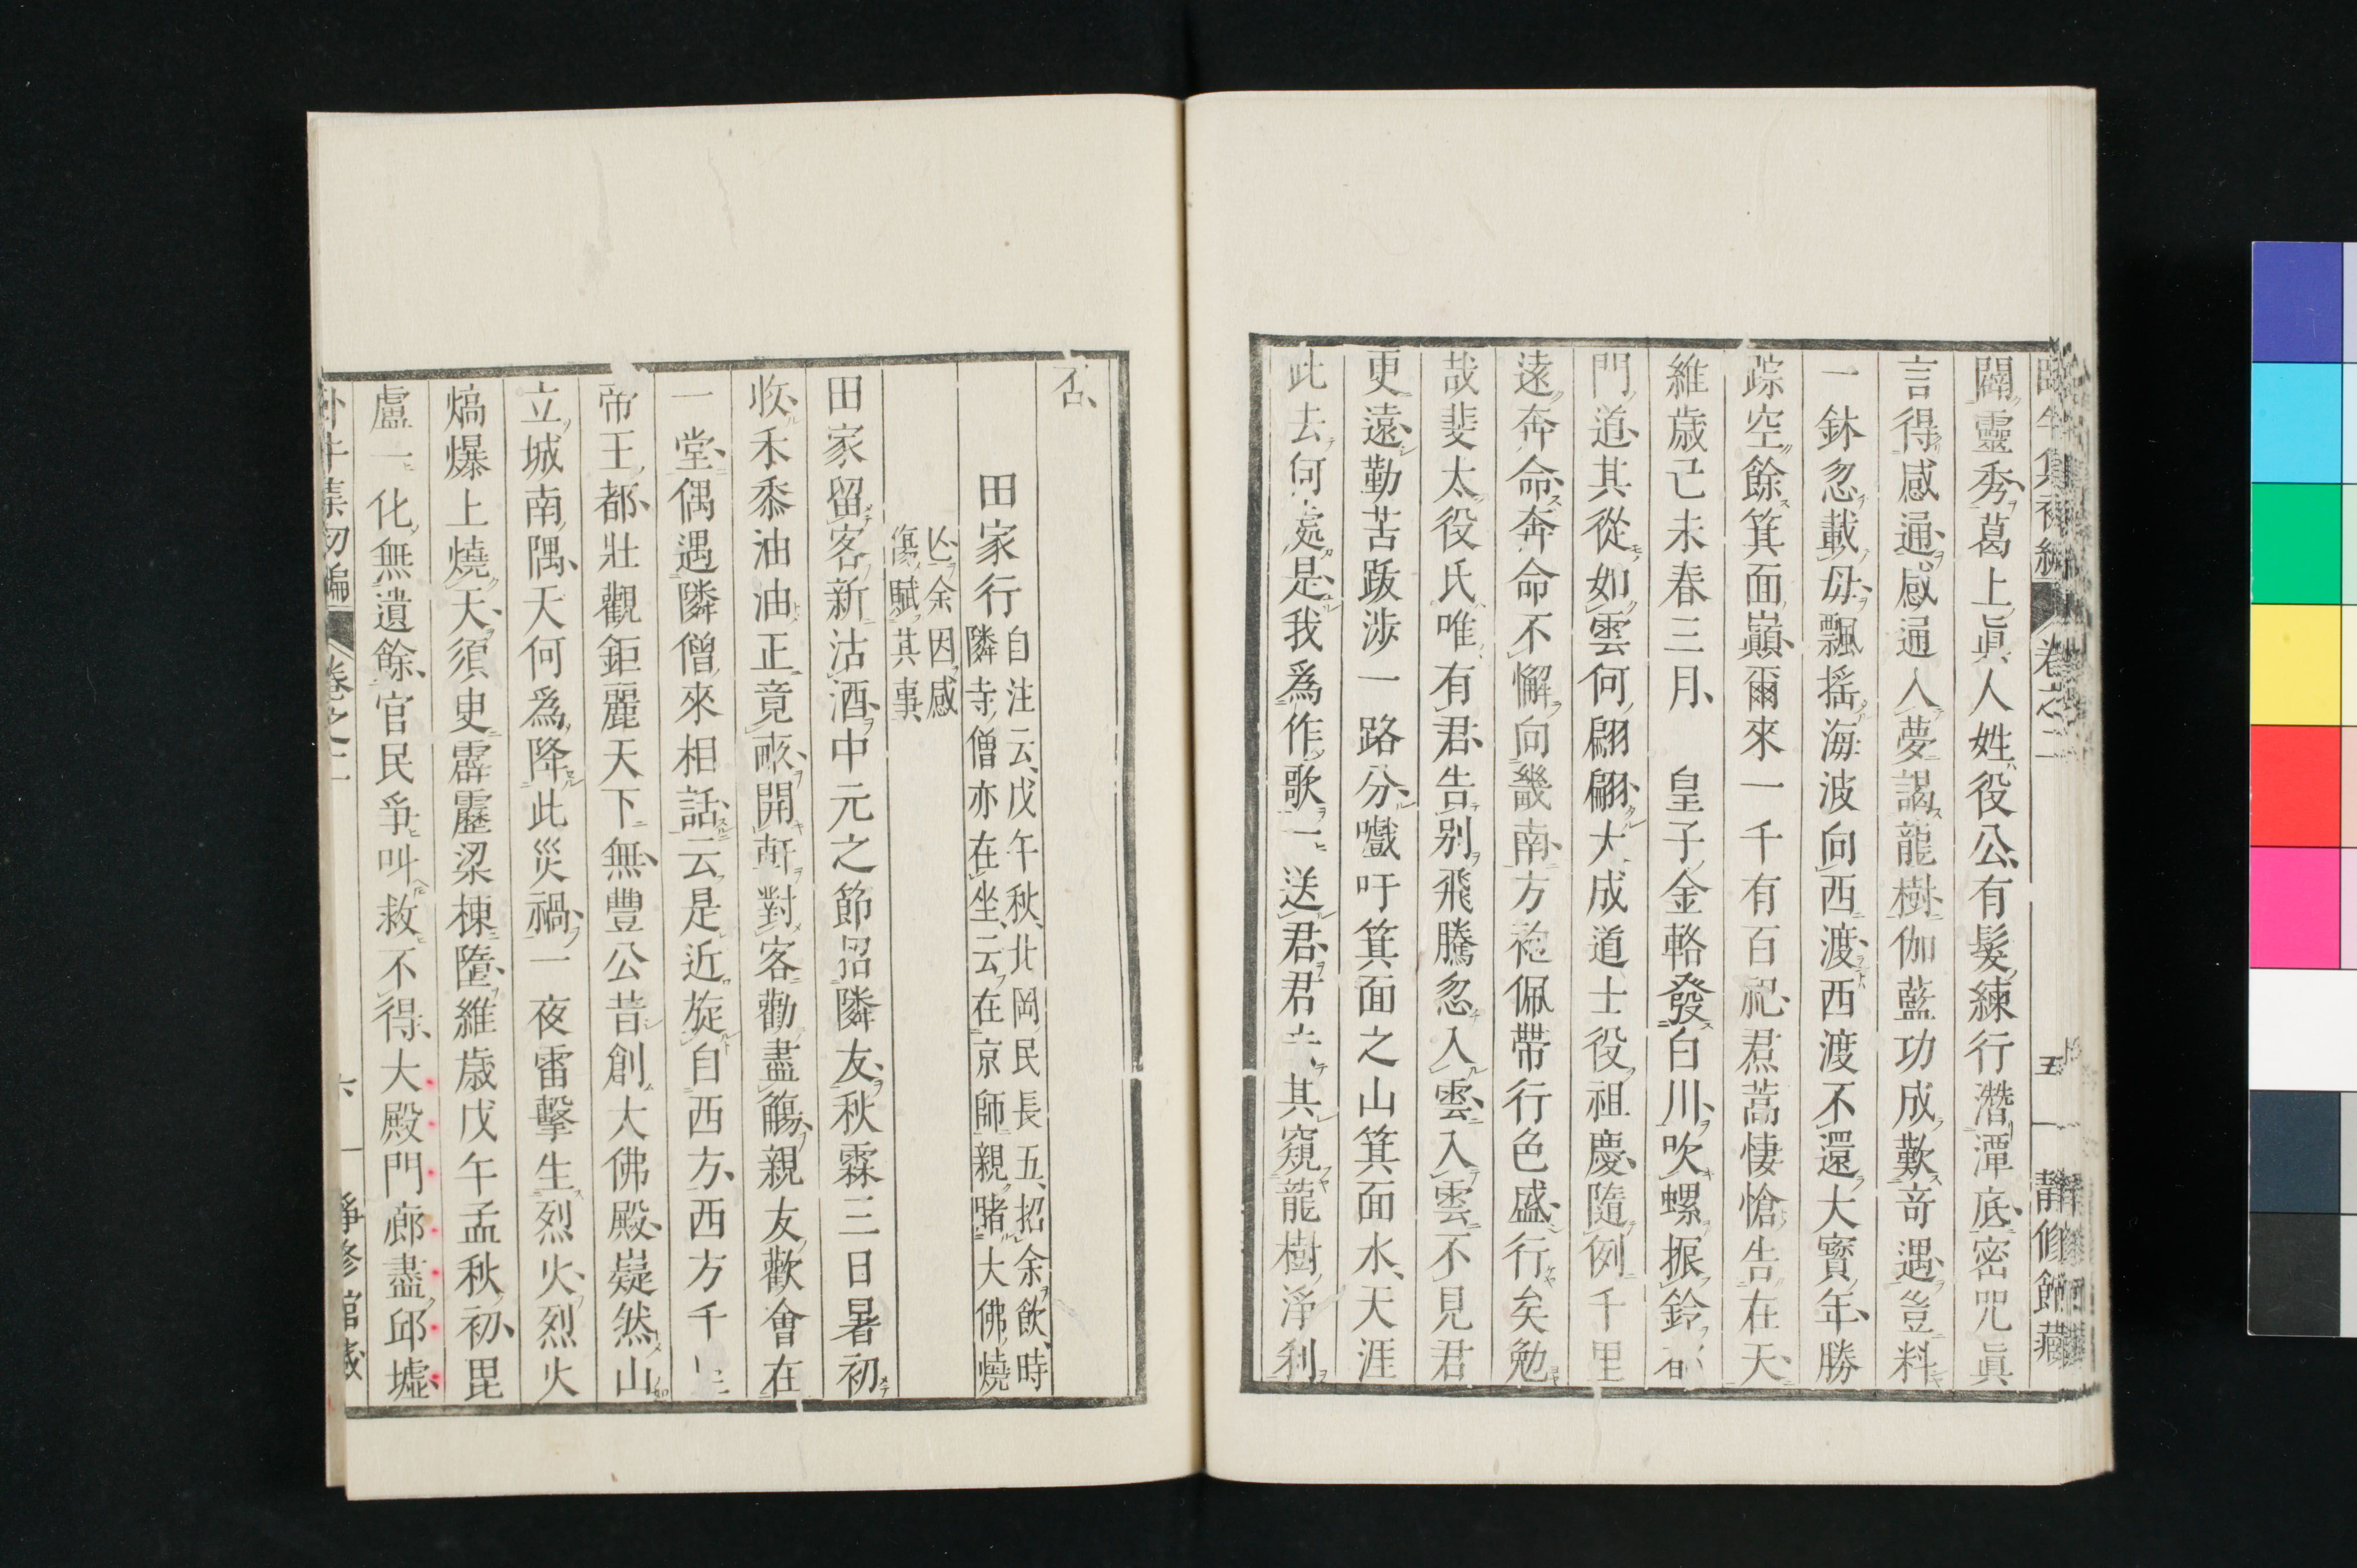 闢靈秀葛上眞人姓役公有髮練行潛潭底密咒眞
言得感通感通入夢謁龍樹伽藍功成歎竒遇豈料
一鉢忽載母飄搖海波向西渡西渡不還大寳年勝
踪空餘箕面巔爾來一千有百祀焄蒿悽愴告在天
維歲己未春三月 皇子金輅發白川吹螺振鈴
門道其從如雲何翩翩大成道士役祖慶隨例千里
遠奔命奔命不懈向畿南方袍佩帶行色盛行矣勉
哉斐太役氏唯有君告別飛騰忽入雲入雲不見君
更遠勤苦跋涉一路分嚱吁箕面之山箕面水天涯
此去何處是我爲作歌一送君君去其窺龍樹淨刹
卷之二 五 靜修館藏
否
田家行 自注云戊午秋北岡民長五招余飲時
隣寺僧亦在坐云在京師親睹大佛燒
亾余因感
傷賦其事
田家留客新沽酒中元之節招隣友秋霖三日暑初
收禾黍油油正竟畝開軒對客勸盡觴親友歡會在
一堂偶遇隣僧來相話云是近旋自西方西方千
帝王都壯觀鉅麗天下無豐公昔創大佛殿嶷然山
立城南隅天何爲降此災禍一夜雷擊生烈火烈火
熇爆上燒天須臾霹靂梁棟墮維歲戊午孟秋初毘
盧一化無遺餘官民爭叫救不得大殿門廊盡邱墟
臥牛集初編 卷之二 六 靜修館藏